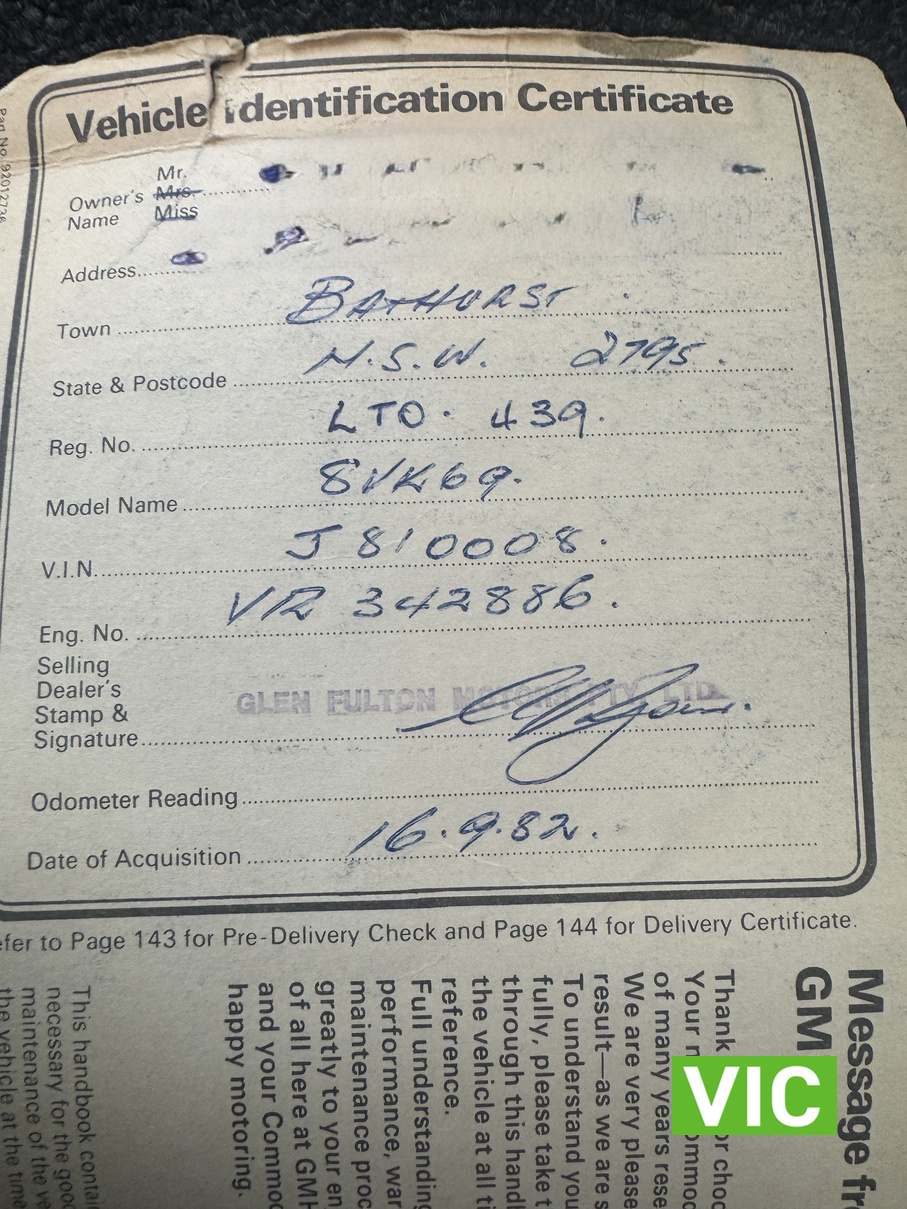 Part No. 92012736
Vehicle Identification Certificate
Mr.
Owner's Mrs.
Name Miss
Address
Town BATHURST.
State & Postcode N.S.W. 2795.
Reg. No. LTO. 439.
Model Name 8VK69.
V.I.N. J810008.
Eng. No. VR 342886.
Selling
Dealer's
Stamp & GLEN FULTON MOTORS PTY. LTD.
Signature
Odometer Reading
Date of Acquisition 16.9.82.
efer to Page 143 for Pre-Delivery Check and Page 144 for Delivery Certificate.
Message fr
GM
Thank or choo
Your n ommod
of many years rese
We are very please
result—as we are s
To understand you
fully, please take t
through this handb
the vehicle at all ti
reference.
Full understanding
performance, warr
maintenance proc
greatly to your en
of all here at GMH
and your Commod
happy motoring.
This handbook contai
necessary for the good
maintenance of the ve
the vehicle at the time
VIC